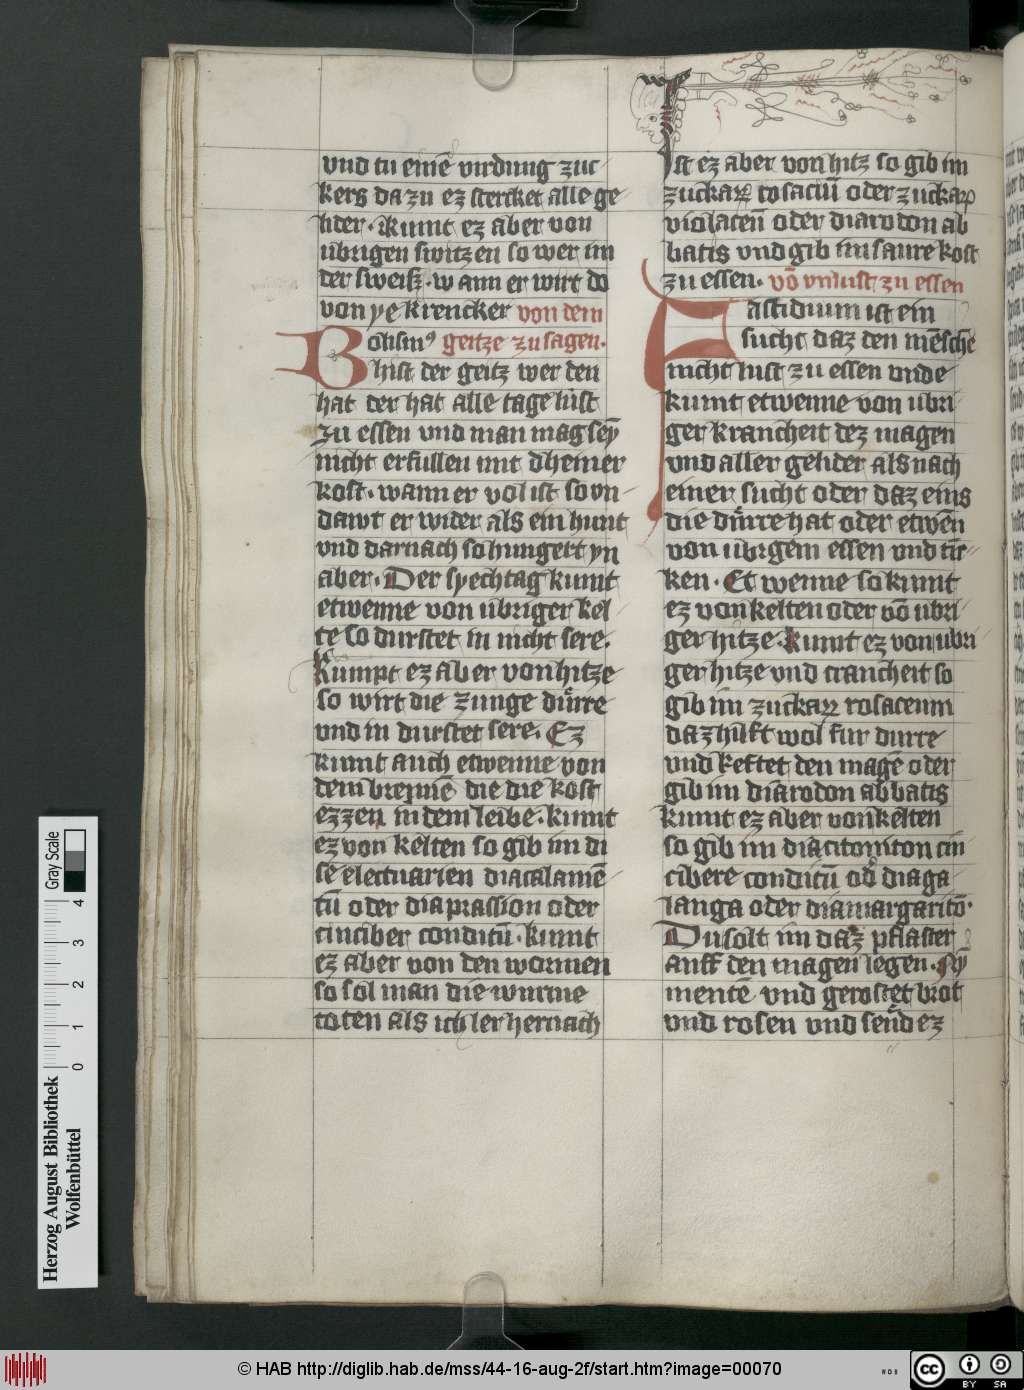 vnd tu eine̅ virdung zuc
kers da zu ez stercket alle ge
lider. Kumt ez aber von
übrigen switzen so wer im
der sweisz. wann er wirt do
von ye krencker von dem
Bolism9 geitze zu sagen.
hist der geitz wer den
hat der hat alle tage lust
zu essen vnd man mag sey̅
nicht erfullen mit dheiner
kost. wann er vol ist so vn
dawt er wider als ein hunt
vnd darnach so hungert yn
aber. Der syechtag kumt
etwenne von übriger kel
te so durstet in nicht sere.
Kumpt ez aber von hitze
so wirt die zunge dürre
vnd in durstet sere. Ez
kumt auch etwenne von
dem die die kost
ezzen in dem leibe. kumt
ez von kelten so gib im di
se electuarien diacalame̅
tu̅ oder diaprassion oder
cinciber conditu̅. kumt
ez aber von den wormen
so sol man die wurme
toten als ich ler hernach
Ist ez aber von hitz so gib im
zuckarꝝ rosaciu̅ oder zuckarꝝ
violaceu̅ oder diarodon ab
batis vnd gib im saure kost
zu essen. vo̅ vnlust zu essen
Fastidium ist ein
sucht daz den me̅sche̅
nicht lust zu essen vnde
kumt etwenne von ubri
ger krancheit dez magen
vnd aller gelider als nach
einer sucht oder daz eins
die dürre hat oder etwe̅n
von ubrigem essen vnd trin
ken. Et wenne so kumt
ez von kelten oder vo̅ ubri
ger hitze. Kumt ez von ubri
ger hitze vnd cranckeit so
gib im zuckarꝝ rosaceum
daz hilft wol fur durre
vnd keltet den mage̅ oder
gib im diarodon abbatis
kumt ez aber von kelten
so gib im diacitoniton cin
cibere conditu̅ od̕ diaga
langa oder diamargarito̅.
Du solt im daz pflaster
auff den magen legen. Ny̅
mente̅ vnd gerostet brot
vnd rosen vnd send ez
Herzog August Bibliothek
Wolfenbüttel
Gray Scale
0 1 2 3 4
© HAB http://diglib.hab.de/mss/44-16-aug-2f/start.htm?image=00070
WDB
cc BY SA